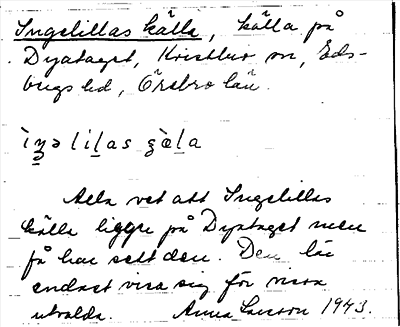 Ingelillas källa, källa på
Dyataget, Kristbro sn, Eds-
bergs hd, Örebro län.
ìŋəliḷas çɛ̀ḷa
Alla vet att Ingelillas
källa ligger på Dyataget men
få har sett den. Den lär
endast visa sig för vissa
utvalda. Anna Larsson 1943.